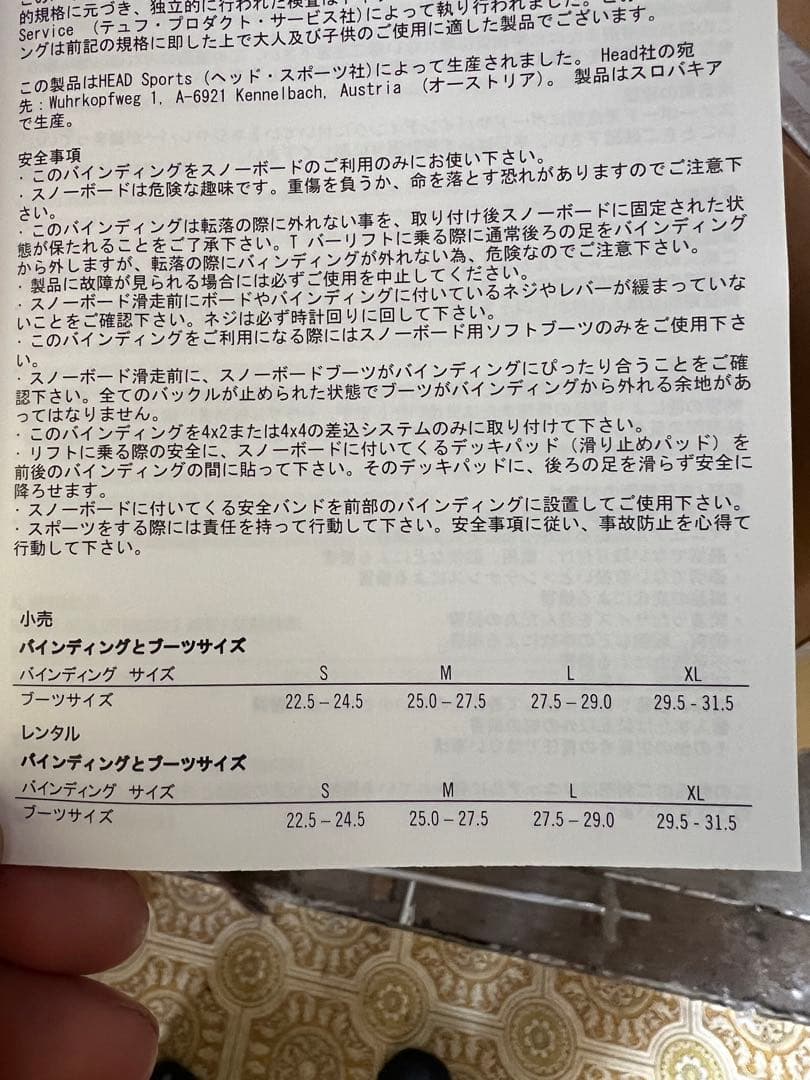 的規格に元づき、独立的に行われた検査は
Service (テュフ・プロダクト・サービス社)によって執り行われました。
ングは前記の規格に即した上で大人及び子供のご使用に適した製品でございます。
この製品はHEAD Sports (ヘッド・スポーツ社)によって生産されました。 Head社の宛
先：Wuhrkopfweg 1, A-6921 Kennelbach, Austria (オーストリア)。 製品はスロバキア
で生産。
安全事項
・このバインディングをスノーボードのご利用のみにお使い下さい。
・スノーボードは危険な趣味です。重傷を負うか、命を落とす恐れがありますのでご注意下
さい。
・このバインディングは転落の際に外れない事を、取り付け後スノーボードに固定された状
態が保たれることをご了承下さい。T バーリフトに乗る際に通常後ろの足をバインディング
から外しますが、転落の際にバィンディングが外れない為、危険なのでご注意下さい。
・製品に故障が見られる場合には必ずご使用を中止してください。
・スノーボード滑走前にボードやバインディングに付いているネジやレバーが緩まっていな
いことをご確認下さい。ネジは必ず時計回りに回して下さい。
・このバインディングをご利用になる際にはスノーボード用ソフトブーツのみをご使用下さ
い。
・スノーボード滑走前に、スノーボードブーツがバインディングにぴったり合うことをご確
認下さい。全てのバックルが止められた状態でブーツがバインディングから外れる余地があ
ってはなりません。
・このバインディングを4x2または4x4の差込システムのみに取り付けて下さい。
・リフトに乗る際の安全に、スノーボードに付いてくるデッキパッド（滑り止めパッド）を
前後のバインディングの間に貼って下さい。そのデッキパッドに、後ろの足を滑らず安全に
降ろせます。
・スノーボードに付いてくる安全バンドを前部のバインディングに設置してご使用下さい。
・スポーツをする際には責任を持って行動して下さい。安全事項に従い、事故防止を心得て
行動して下さい。
小売
バインディングとブーツサイズ
バインディング サイズ S M L XL
ブーツサイズ 22.5 – 24.5 25.0 – 27.5 27.5 – 29.0 29.5 - 31.5
レンタル
バインディングとブーツサイズ
バインディング サイズ S M L XL
ブーツサイズ 22.5 – 24.5 25.0 – 27.5 27.5 – 29.0 29.5 - 31.5